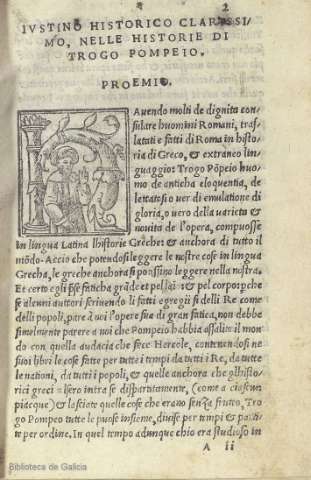 2
IVSTINO HISTORICO CLARISSI
MO, NELLE HISTORIE DI
TROGO POMPEIO.
PROEMIO.
Auendo molti de dignita con-
sulare huomini Romani, tras-
latati e fatti di Roma in histo
ria di Greco, & extraneo lin-
guaggio: Trogo Põpeio huo
mo de anticha eloquentia, de
lettatosi o uer di emulatione di
gloria, o uero della varieta &
nouita de l'opera, compuosse
in lingua Latina lhistorie Greche: & anchora di tutto il
mõdo. Accio che potendosi leggere le nostre cose in lingua
Grecha, le greche anchora si possino leggere nella nostra.
Et certo egli esse fatica grãde et pel & pel corpo: pche
se alcuni auttori scriuendo li fatti egregii di delli Re come
delli popoli, pare a noi l'opere sue di gran fatica, non debbe
similmente parere a noi che Pompeio habbia assalito il mon
do con quella audacia che fece Hercole, contenendosi ne
suoi libri le cose fatte per tutti i tempi da tutti i Re, da tutte
le nationi, da tutti i popoli, & quelle anchora che glhisto-
rici greci intra se dispartitamente, (come a ciascun
piacque) & lasciate quelle cose che erano senza frutto, Tro
go Pompeo tutte le puose insieme, diuise per tempi & par
te per ordine. In quel tempo adunque chio era studioso in
A ii
Biblioteca de Galicia